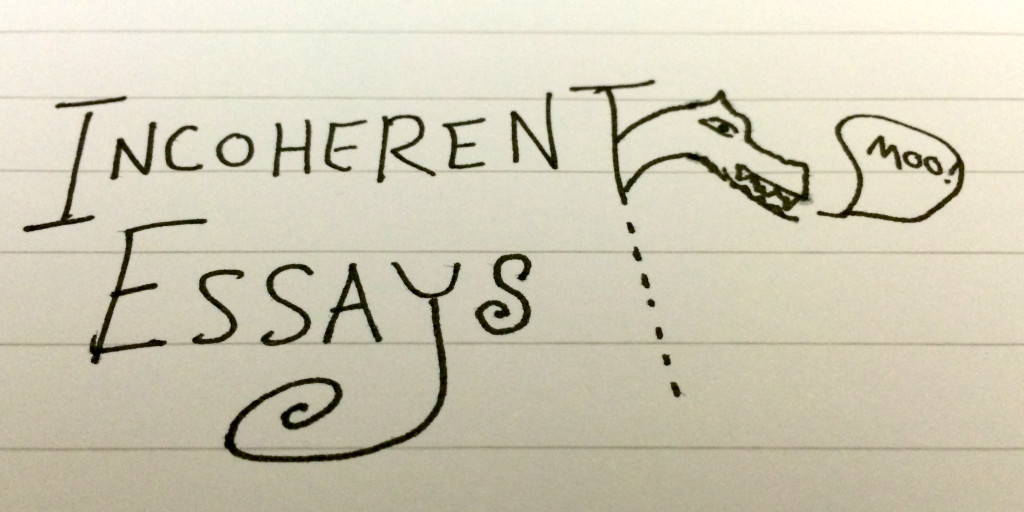 INCOHERENT
MOO!
ESSAYS